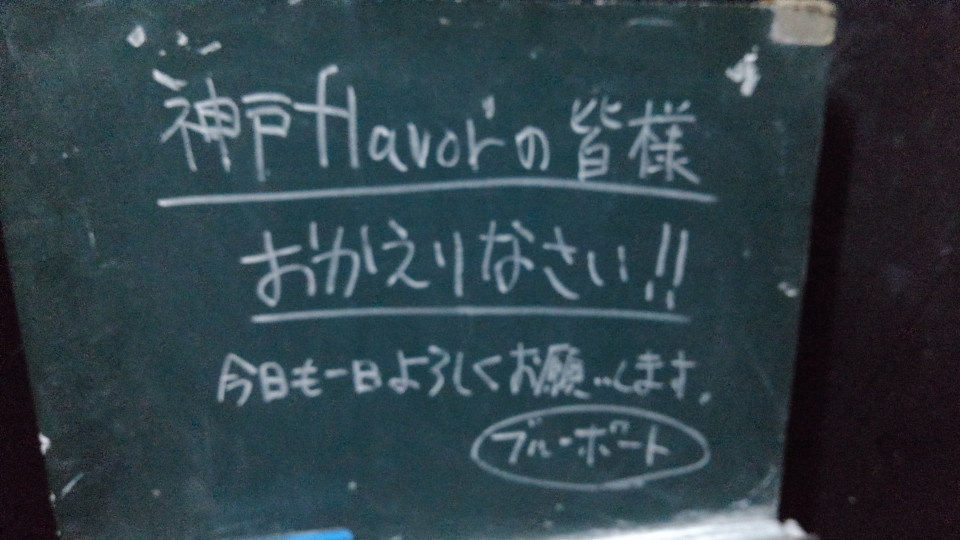 神戸flavorの皆様
おかえりなさい!!
今日も一日よろしくお願いします。
ブルーポート